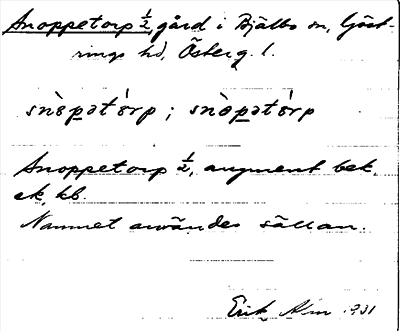 Snoppetorp ½, gård i Bjälbo sn, Göst-
rings hd, Österg. l.
snòpətórp ; snòpətórp
Snoppetorp ½, augment bek.
ek, kb.
Namnet användes sällan.
Erik Alm 1931